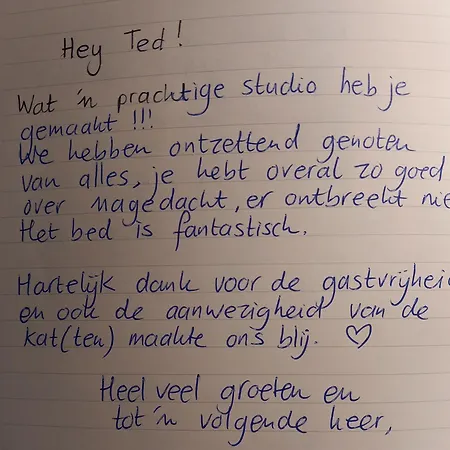 Hey Ted!
Wat 'n prachtige studio heb je
gemaakt !!!
We hebben ontzettend genoten
van alles, je hebt overal zo goed
over nagedacht, er ontbreekt nie
Het bed is fantastisch.
Hartelijk dank voor de gastvrijheid
en ook de aanwezigheid van de
kat(ten) maakte ons blij. ♡
Heel veel groeten en
tot 'n volgende keer,